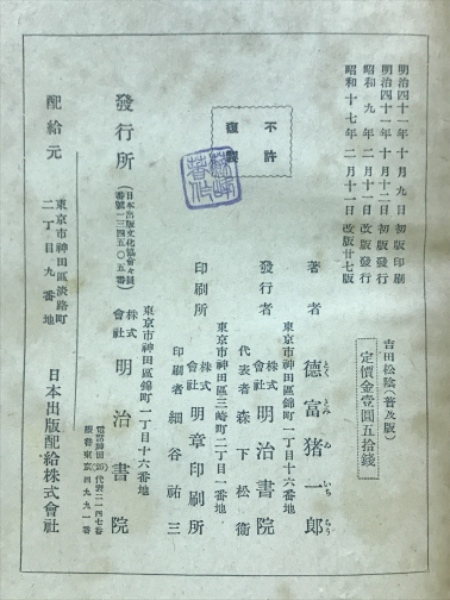 明治四十一年十月九日初版印刷
明治四十一年十月十二日初版發行
昭和九年二月十一日改版發行
昭和十七年二月十一日改版廿七版
吉田松陰（普及版）
定價金壹圓五拾錢
不許
複製
著者 德富猪一郎
とくとみゐいちらう
東京市神田區錦町一丁目十六番地
發行者 株式會社 明治書院
代表者 森下松衞
東京市神田區三崎町二丁目一番地
印刷所 株式會社 明章印刷所
印刷者 細谷祐三
東京市神田區錦町一丁目十六番地
發行所 株式會社 明治書院
（日本出版文化協會々員番號一三四五〇五番）
電話神田(25)代表二一四七番
振替東京四九九一番
配給元 東京市神田區淡路町二丁目九番地 日本出版配給株式會社